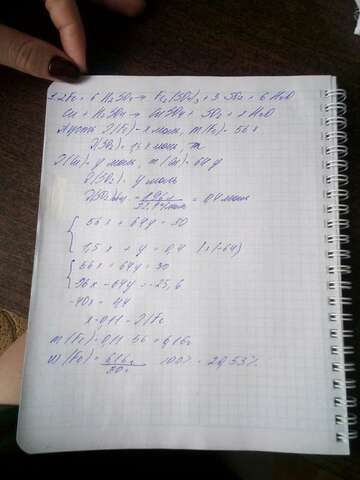 1. 2Fe + 6 H₂SO₄ → Fe₂(SO₄)₃ + 3 SO₂ + 6 H₂O
Cu + H₂SO₄ → CuSO₄ + SO₂ + 2 H₂O
Пусть ν(Fe) - x моль, m(Fe) = 56x
ν(SO₂) = 1,5x моль
ν(Cu) = y моль, m(Cu) = 64y
ν(SO₂) = y моль
= 0,4 моль
56x + 64y = 30
1,5x + y = 0,4 (x(-64)
56x + 64y = 30
-96x - 64y = -25,6
-40x = 4,4
x = 0,11 - ν(Fe)
m(Fe) = 0,11 · 56 = 6,16г
w(Fe) = 6,16г / 30г · 100% = 20,53%